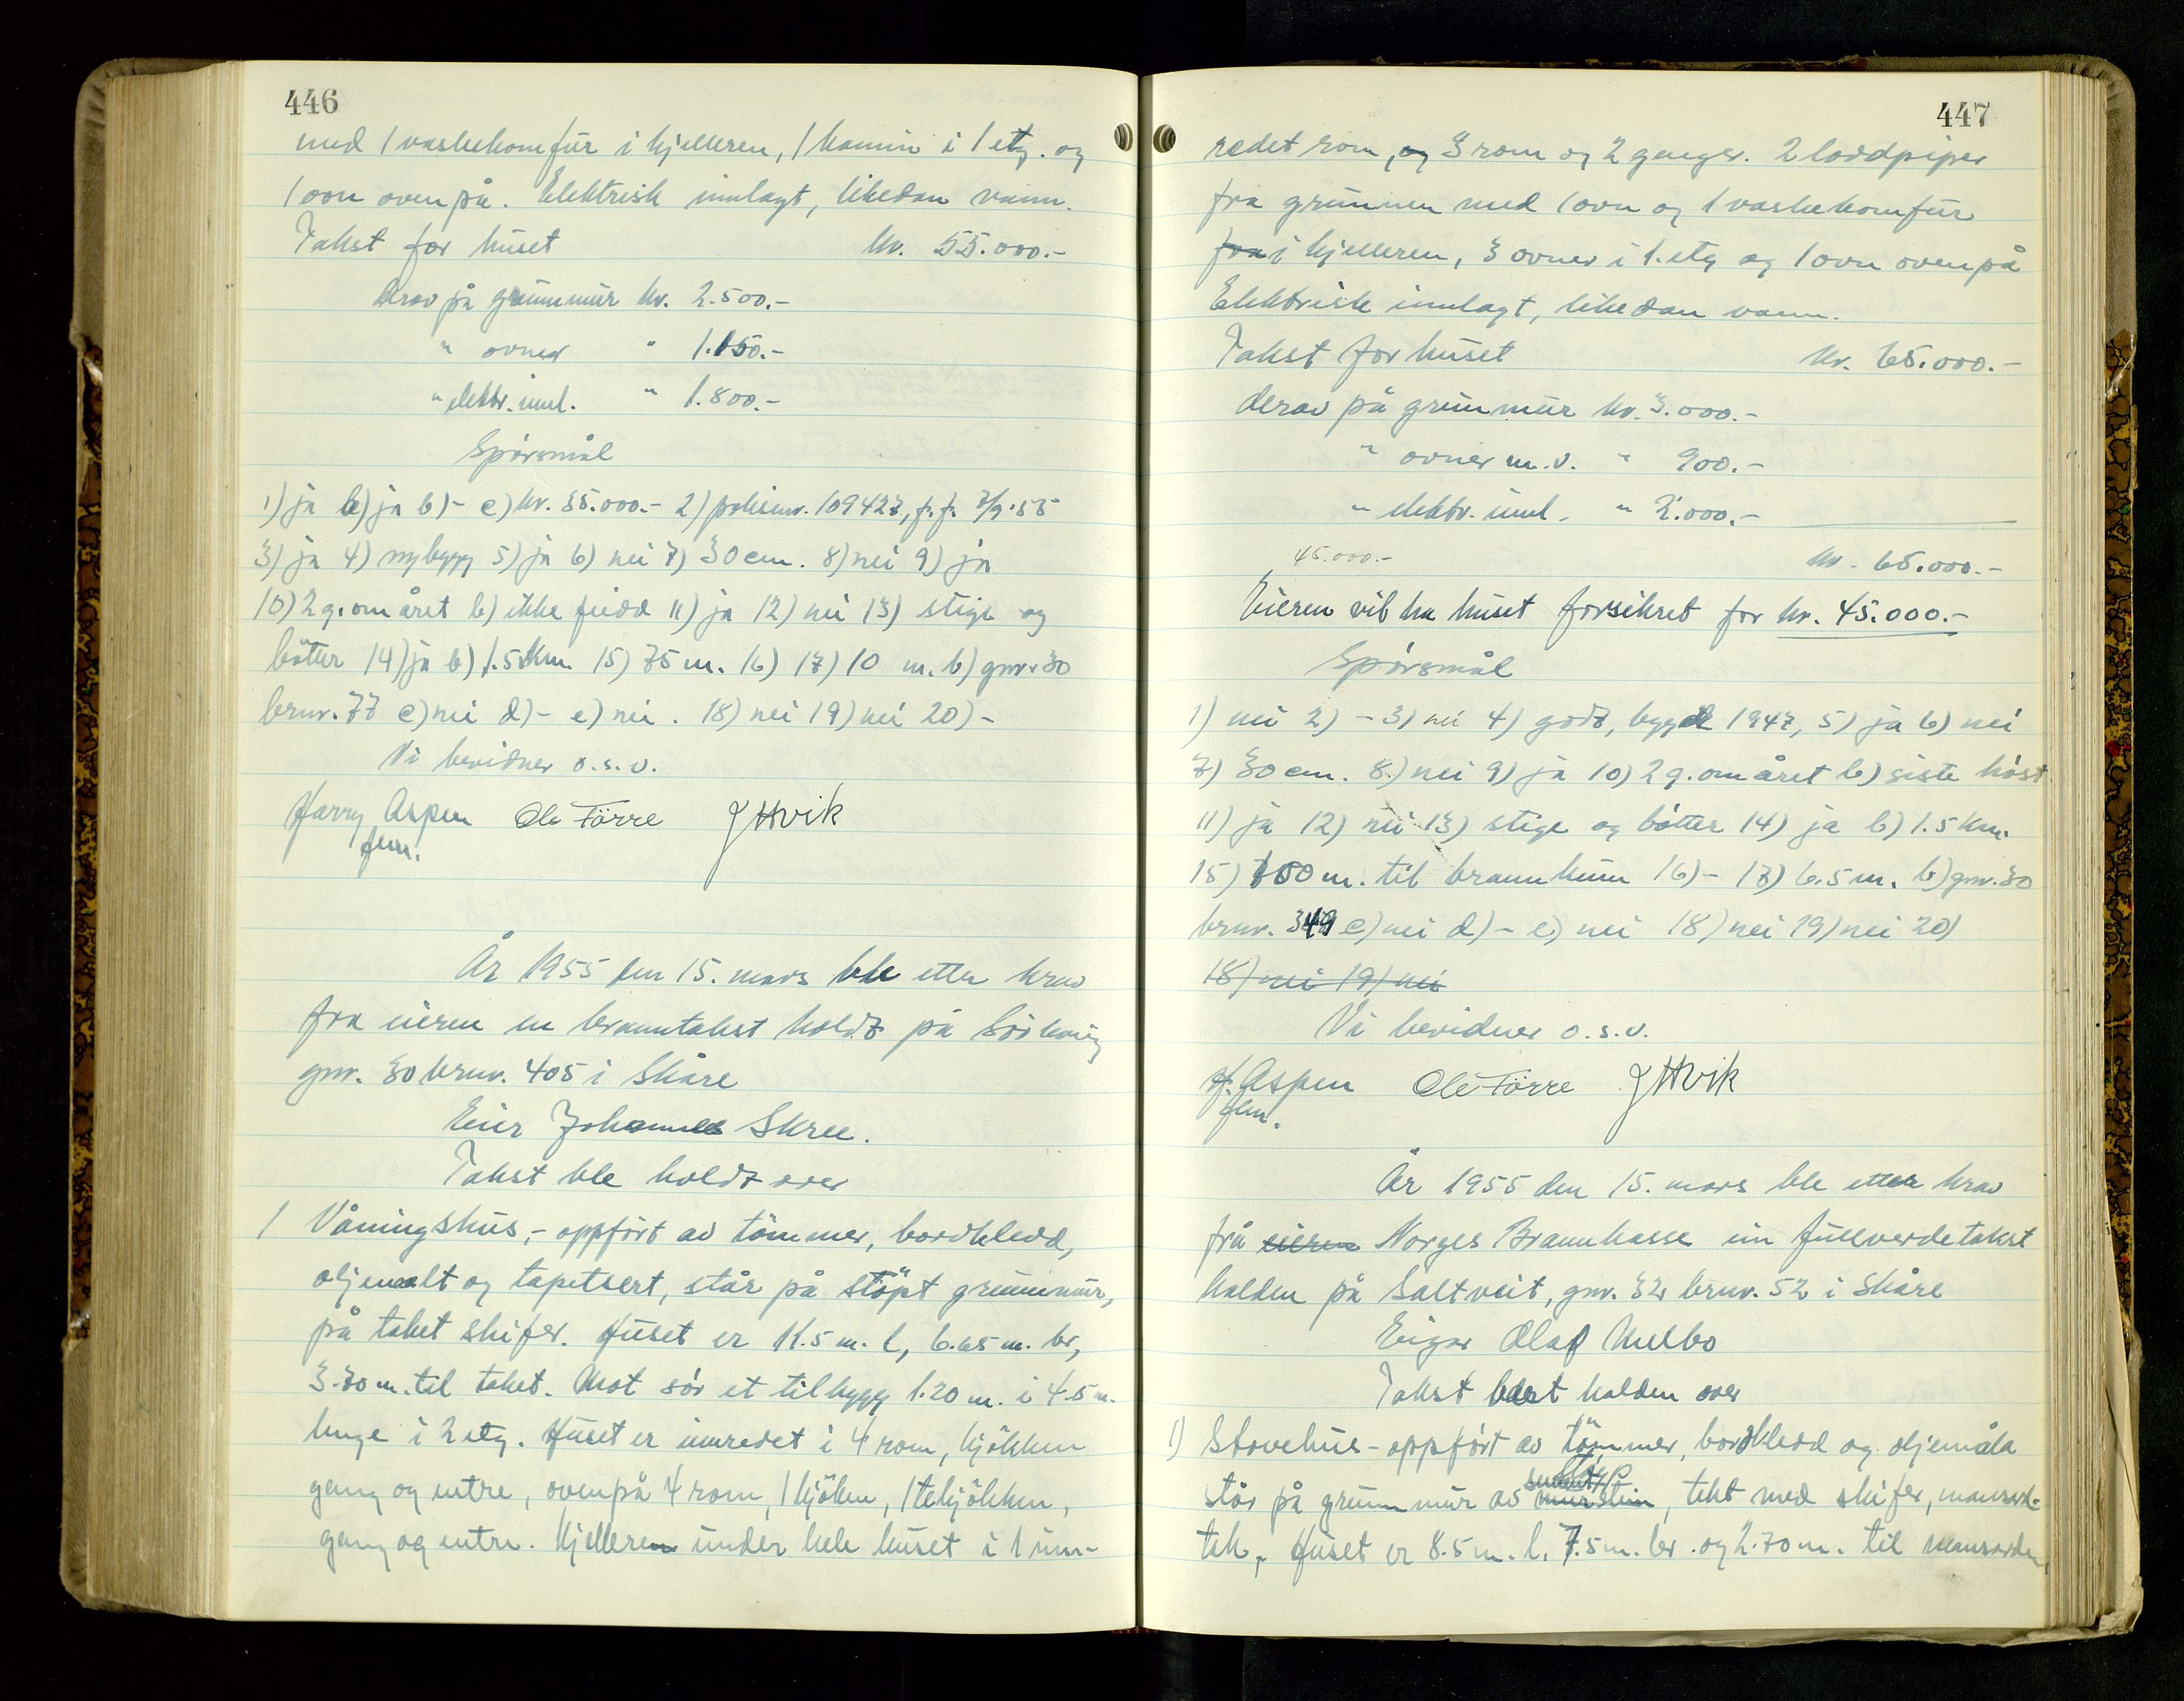 446
med 1 vaskekomfur i kjelleren, 1 kamin i 1 etg. og
1 ovn ovenpå. Elektrisk innlagt, likedan vann.
Takst for huset kr. 55.000.-
derav på grunnmur kr. 2.500.-
" ovner " 1.150.-
" elektr. innl. " 1.800.-
Spörsmål
1) ja b) ja b) - c) kr. 35.000.- 2) polisenr. 109427, f.f. 7/9.55
3) ja 4) nybygg 5) ja 6) nei 7) 30 cm. 8) nei 9) ja
10) 2 g. om året b) ikke feidd 11) ja 12) nei 13) stige og
bötter 14) ja b) 1.5 km. 15) 75 m. 16) 17) 10 m. b) gnr. 30
brnr. 77 c) nei d) - e) nei. 18) nei 19) nei 20) -
Vi bevidner o.s.v.
Harry Aspen Ole Förre J Hvik
fm.
År 1955 den 15. mars ble etter krav
fra eieren en branntakst holdt på Sörhaug
gnr. 30 brnr. 405 i Skåre
Eier Johannes Skree.
Takst ble holdt over
1 Våningshus, - oppfört av tömmer, bordkledd,
oljemalt og tapetsert, står på stöpt grunnmur,
på taket skifer. Huset er 11.5 m. l, 6.65 m. br,
3.70 m. til taket. Mot sör et tilbygg 1.20 m. i 4.5 m.
lenge i 2 etg. Huset er innredet i 4 rom, kjökken
gang og entre, ovenpå 4 rom, 1 kjöken, 1 tekjökken,
gang og entre. Kjelleren under hele huset i 1 inn-
447
redet rom, og 3 rom og 2 ganger. 2 loddpiper
fra grunnen med 1 ovn og 1 vaskekomfur
fra i kjelleren, 3 ovner i 1. etg og 1 ovn ovenpå
Elektrisk innlagt, likedan vann.
Takst for huset kr. 65.000.-
derav på grunnmur kr. 3.000.-
" ovner m.v. " 900.-
" elektr. innl. " 2.000.-
45.000.- kr. 65.000.-
Eieren vil ha huset forsikret for kr. 45.000.-
Spörsmål
1) nei 2) - 3) nei 4) godt, bygd 1947, 5) ja 6) nei
7) 30 cm. 8.) nei 9) ja 10) 2 g. om året b) siste höst
11) ja 12) nei 13) stige og bötter 14) ja b) 1.5 km.
15) 150 m. til brannkum 16) - 17) 6.5 m. b) gnr. 30
brnr. 349 c) nei d) - e) nei 18) nei 19) nei 20)
18) nei 19) nei
Vi bevidner o.s.v.
H. Aspen Ole Förre J Hvik
fm.
År 1955 den 15. mars ble etter krav
frå eieren Norges Brannkasse ein fullverdetakst
halden på Saltveit, gnr. 32 brnr. 52 i Skåre
Eigar Olaf Melbo
Takst blei halden over
1) Stovehus - oppfört av tömmer, bordkledd og oljemåla
står på grunnmur av sement murstein, tekt med skifer, mansard-
tek, Huset er 8.5 m. l. 7.5 m. br. og 2.70 m. til mansarden,